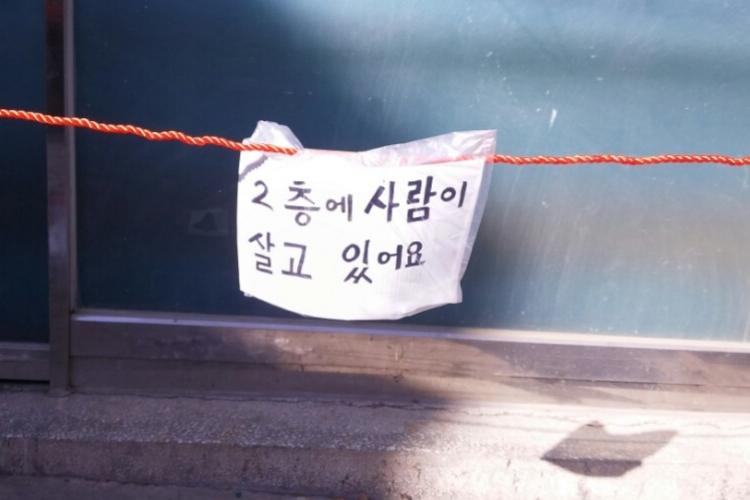 2층에 사람이
살고 있어요